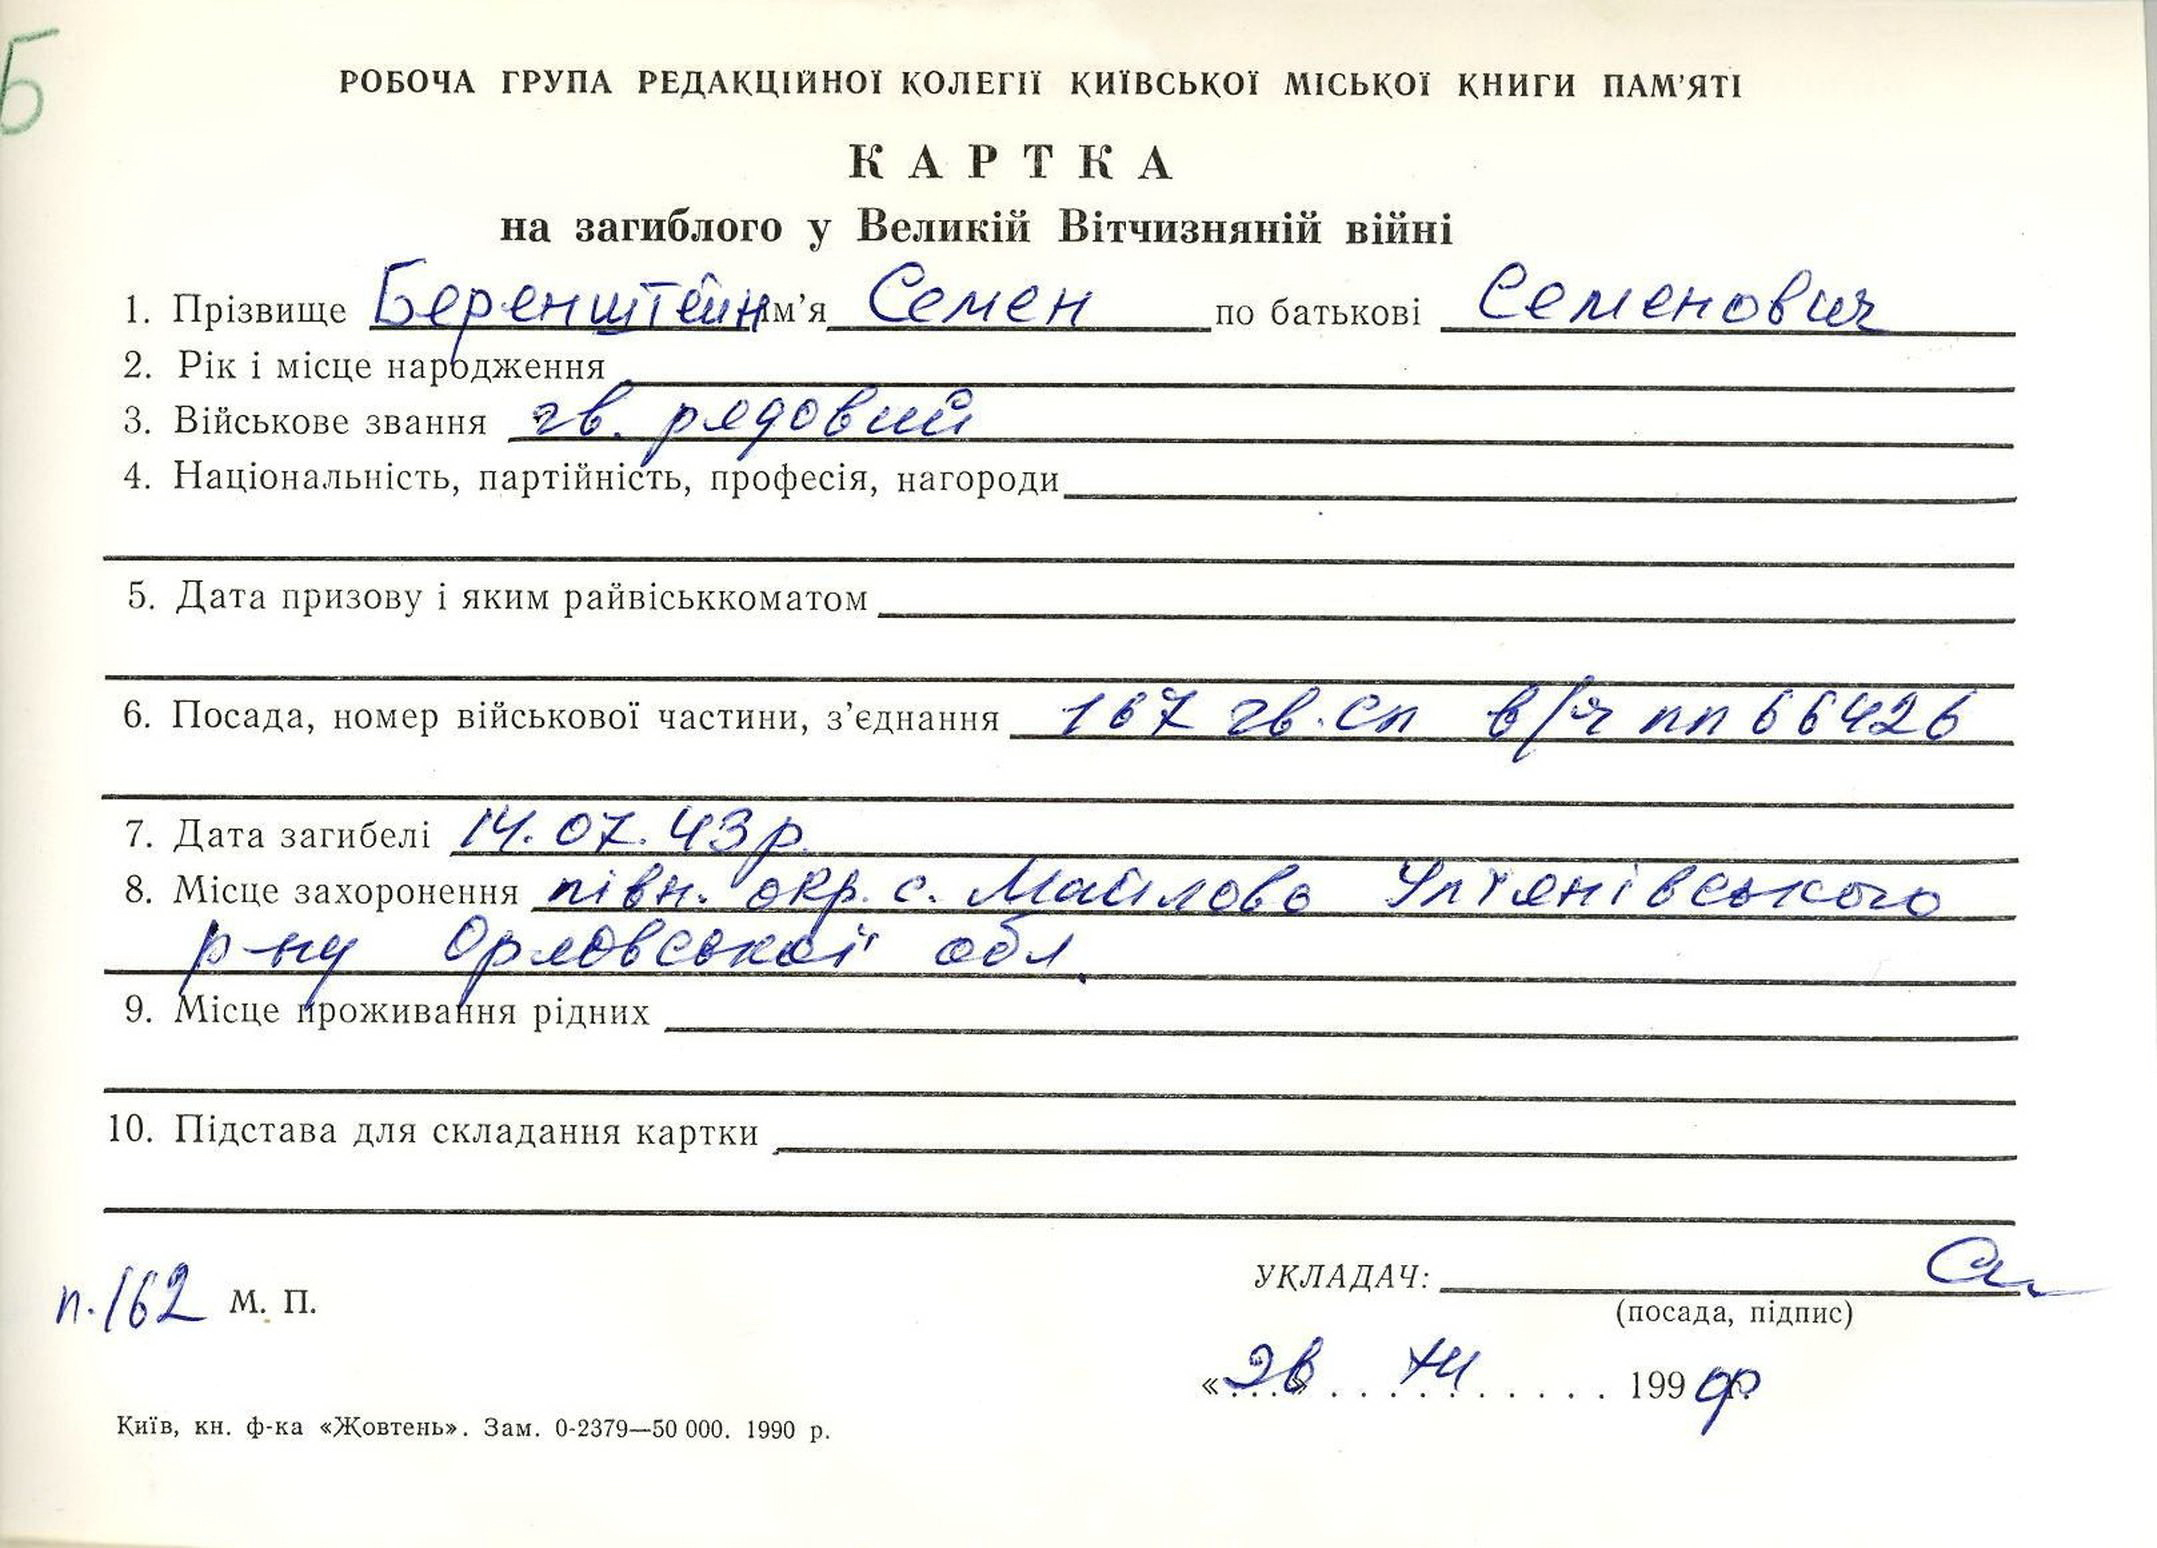 Б
РОБОЧА ГРУПА РЕДАКЦІЙНОЇ КОЛЕГІЇ КИЇВСЬКОЇ МІСЬКОЇ КНИГИ ПАМ'ЯТІ
КАРТКА
на загиблого у Великій Вітчизняній війні
1. Прізвище Беренштейн ім'я Семен по батькові Семенович
2. Рік і місце народження
3. Військове звання гв. рядовий
4. Національність, партійність, професія, нагороди
5. Дата призову і яким райвіськкоматом
6. Посада, номер військової частини, з'єднання 167 гв. сп в/ч пп 66426
7. Дата загибелі 14.07.43р.
8. Місце захоронення півн. окр. с. Майлово
р-ну Орловської обл.
9. Місце проживання рідних
10. Підстава для складання картки
п.162 М. П. УКЛАДАЧ:
(посада, підпис)
« » 199
Київ, кн. ф-ка «Жовтень». Зам. 0-2379—50 000. 1990 р.